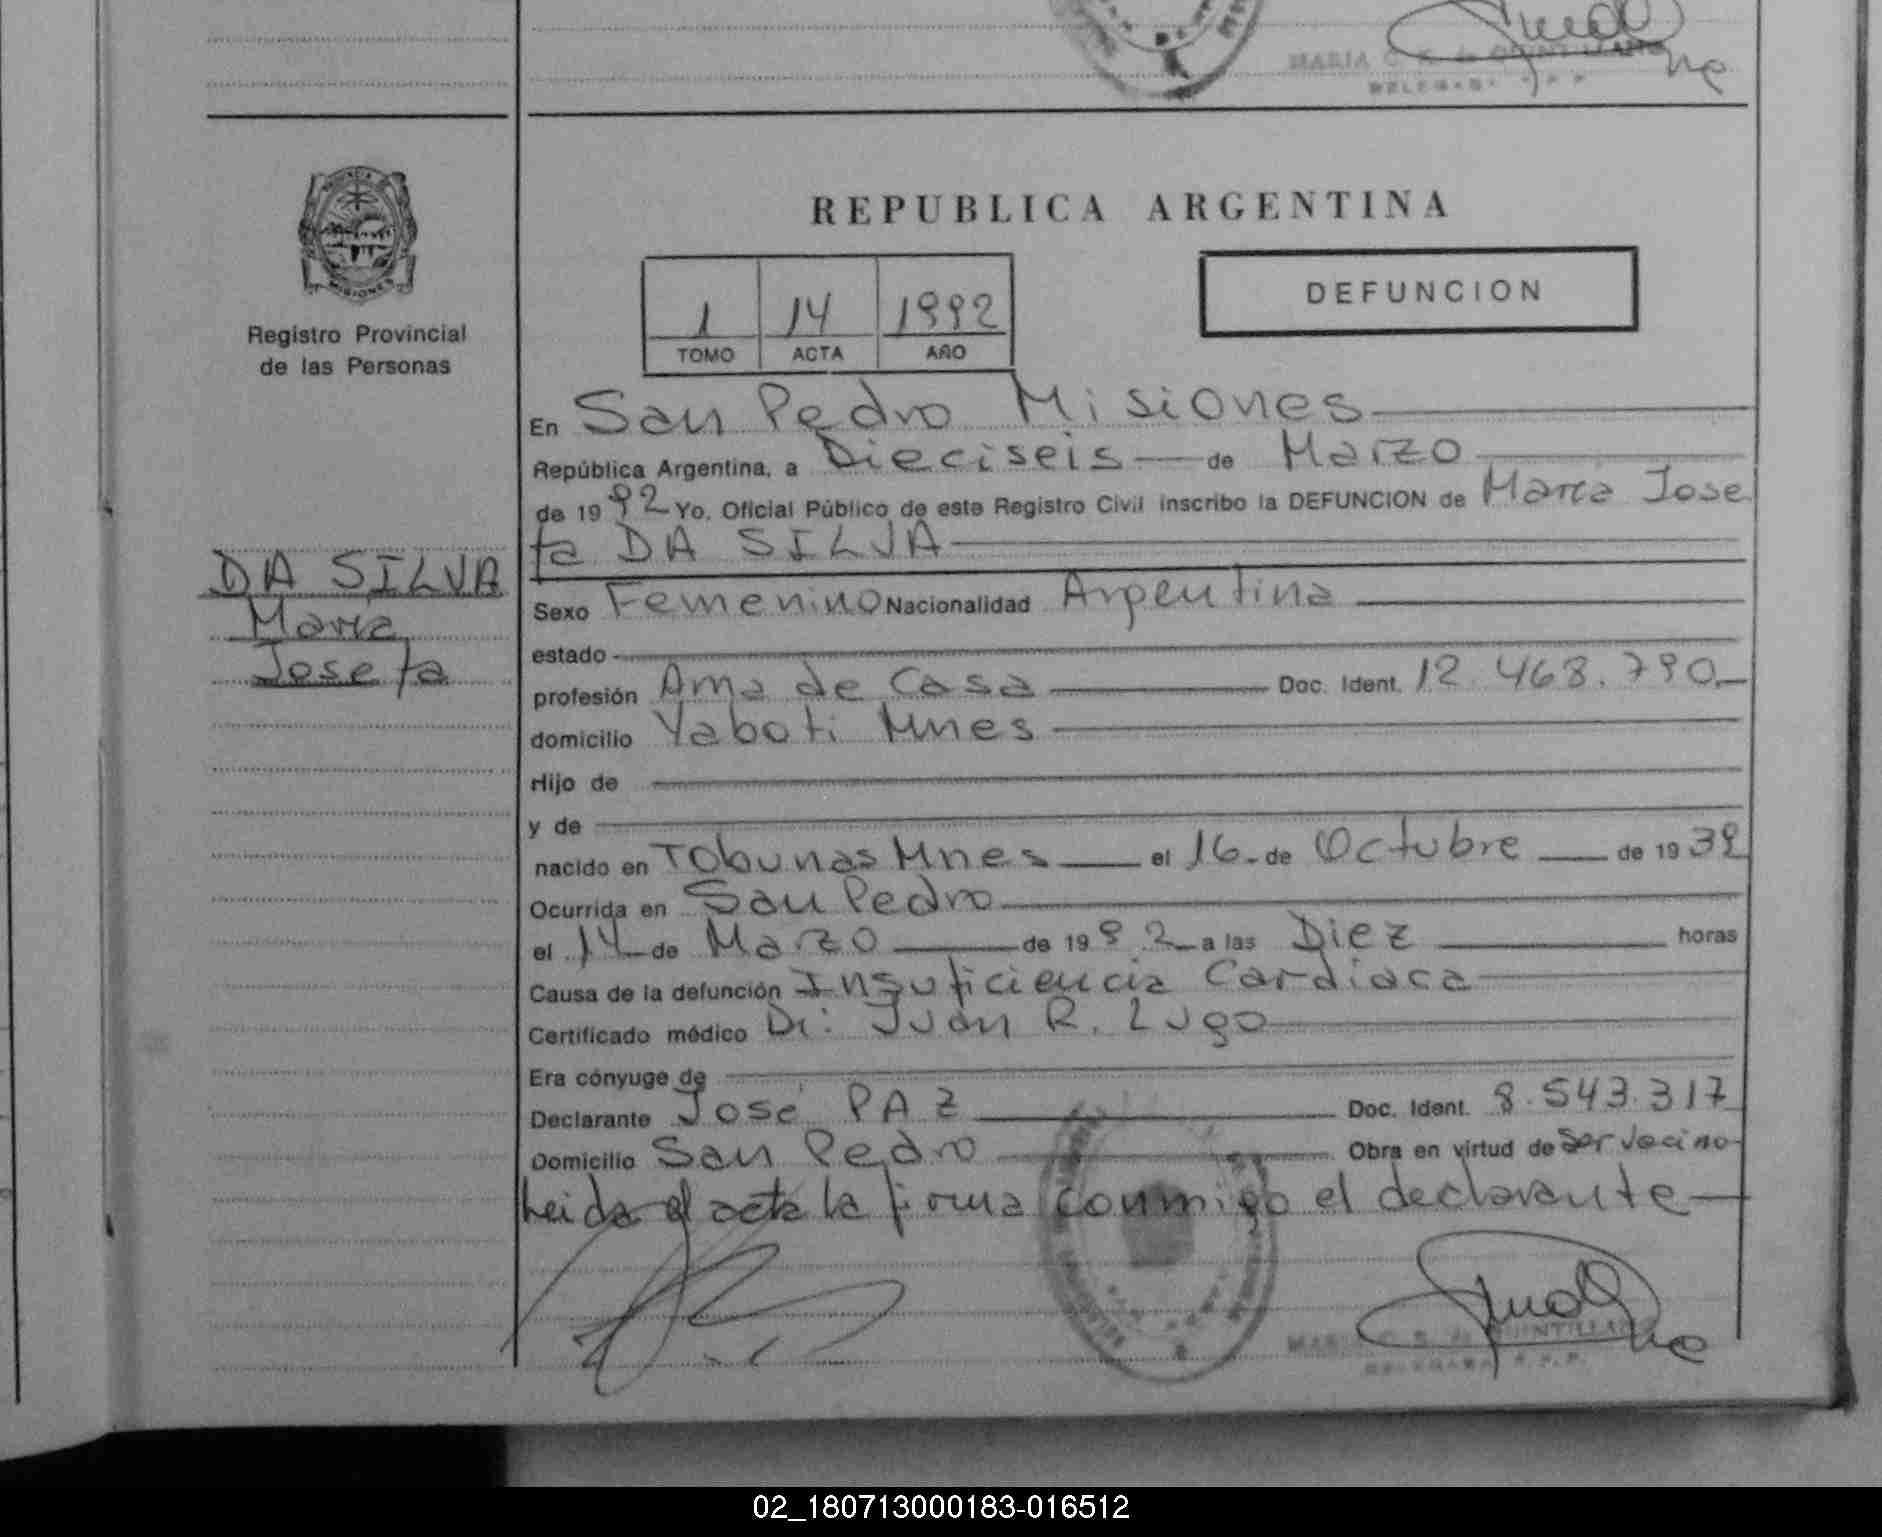 MARIA C. S. de QUINTILLANO
DELEGADA R.P.P.
PROVINCIA
MISIONES
Registro Provincial
de las Personas
DA SILVA
Maria
Josefa
REPUBLICA ARGENTINA
1 14 1992
TOMO ACTA AÑO
DEFUNCION
En San Pedro Misiones
República Argentina, a Dieciseis de Marzo
de 1992 Yo. Oficial Público de este Registro Civil inscribo la DEFUNCION de Maria Jose
fa DA SILVA
Sexo Femenino Nacionalidad Argentina
estado
profesión Ama de Casa Doc. Ident. 12.468.790
domicilio Yaboti Mnes
Hijo de
y de
nacido en Tobunas Mnes el 16 de Octubre de 1939
Ocurrida en San Pedro
el 14 de Marzo de 1992 a las Diez horas
Causa de la defunción Insuficiencia Cardiaca
Certificado médico Dr: Juan R. Lugo
Era cónyuge de
Declarante José PAZ Doc. Ident. 8.543.317
Domicilio San Pedro Obra en virtud de Ser vecino
Leida el acta la firma conmigo el declarante
MARIA C. S. de QUINTILLANO
DELEGADA R.P.P.
02_180713000183-016512